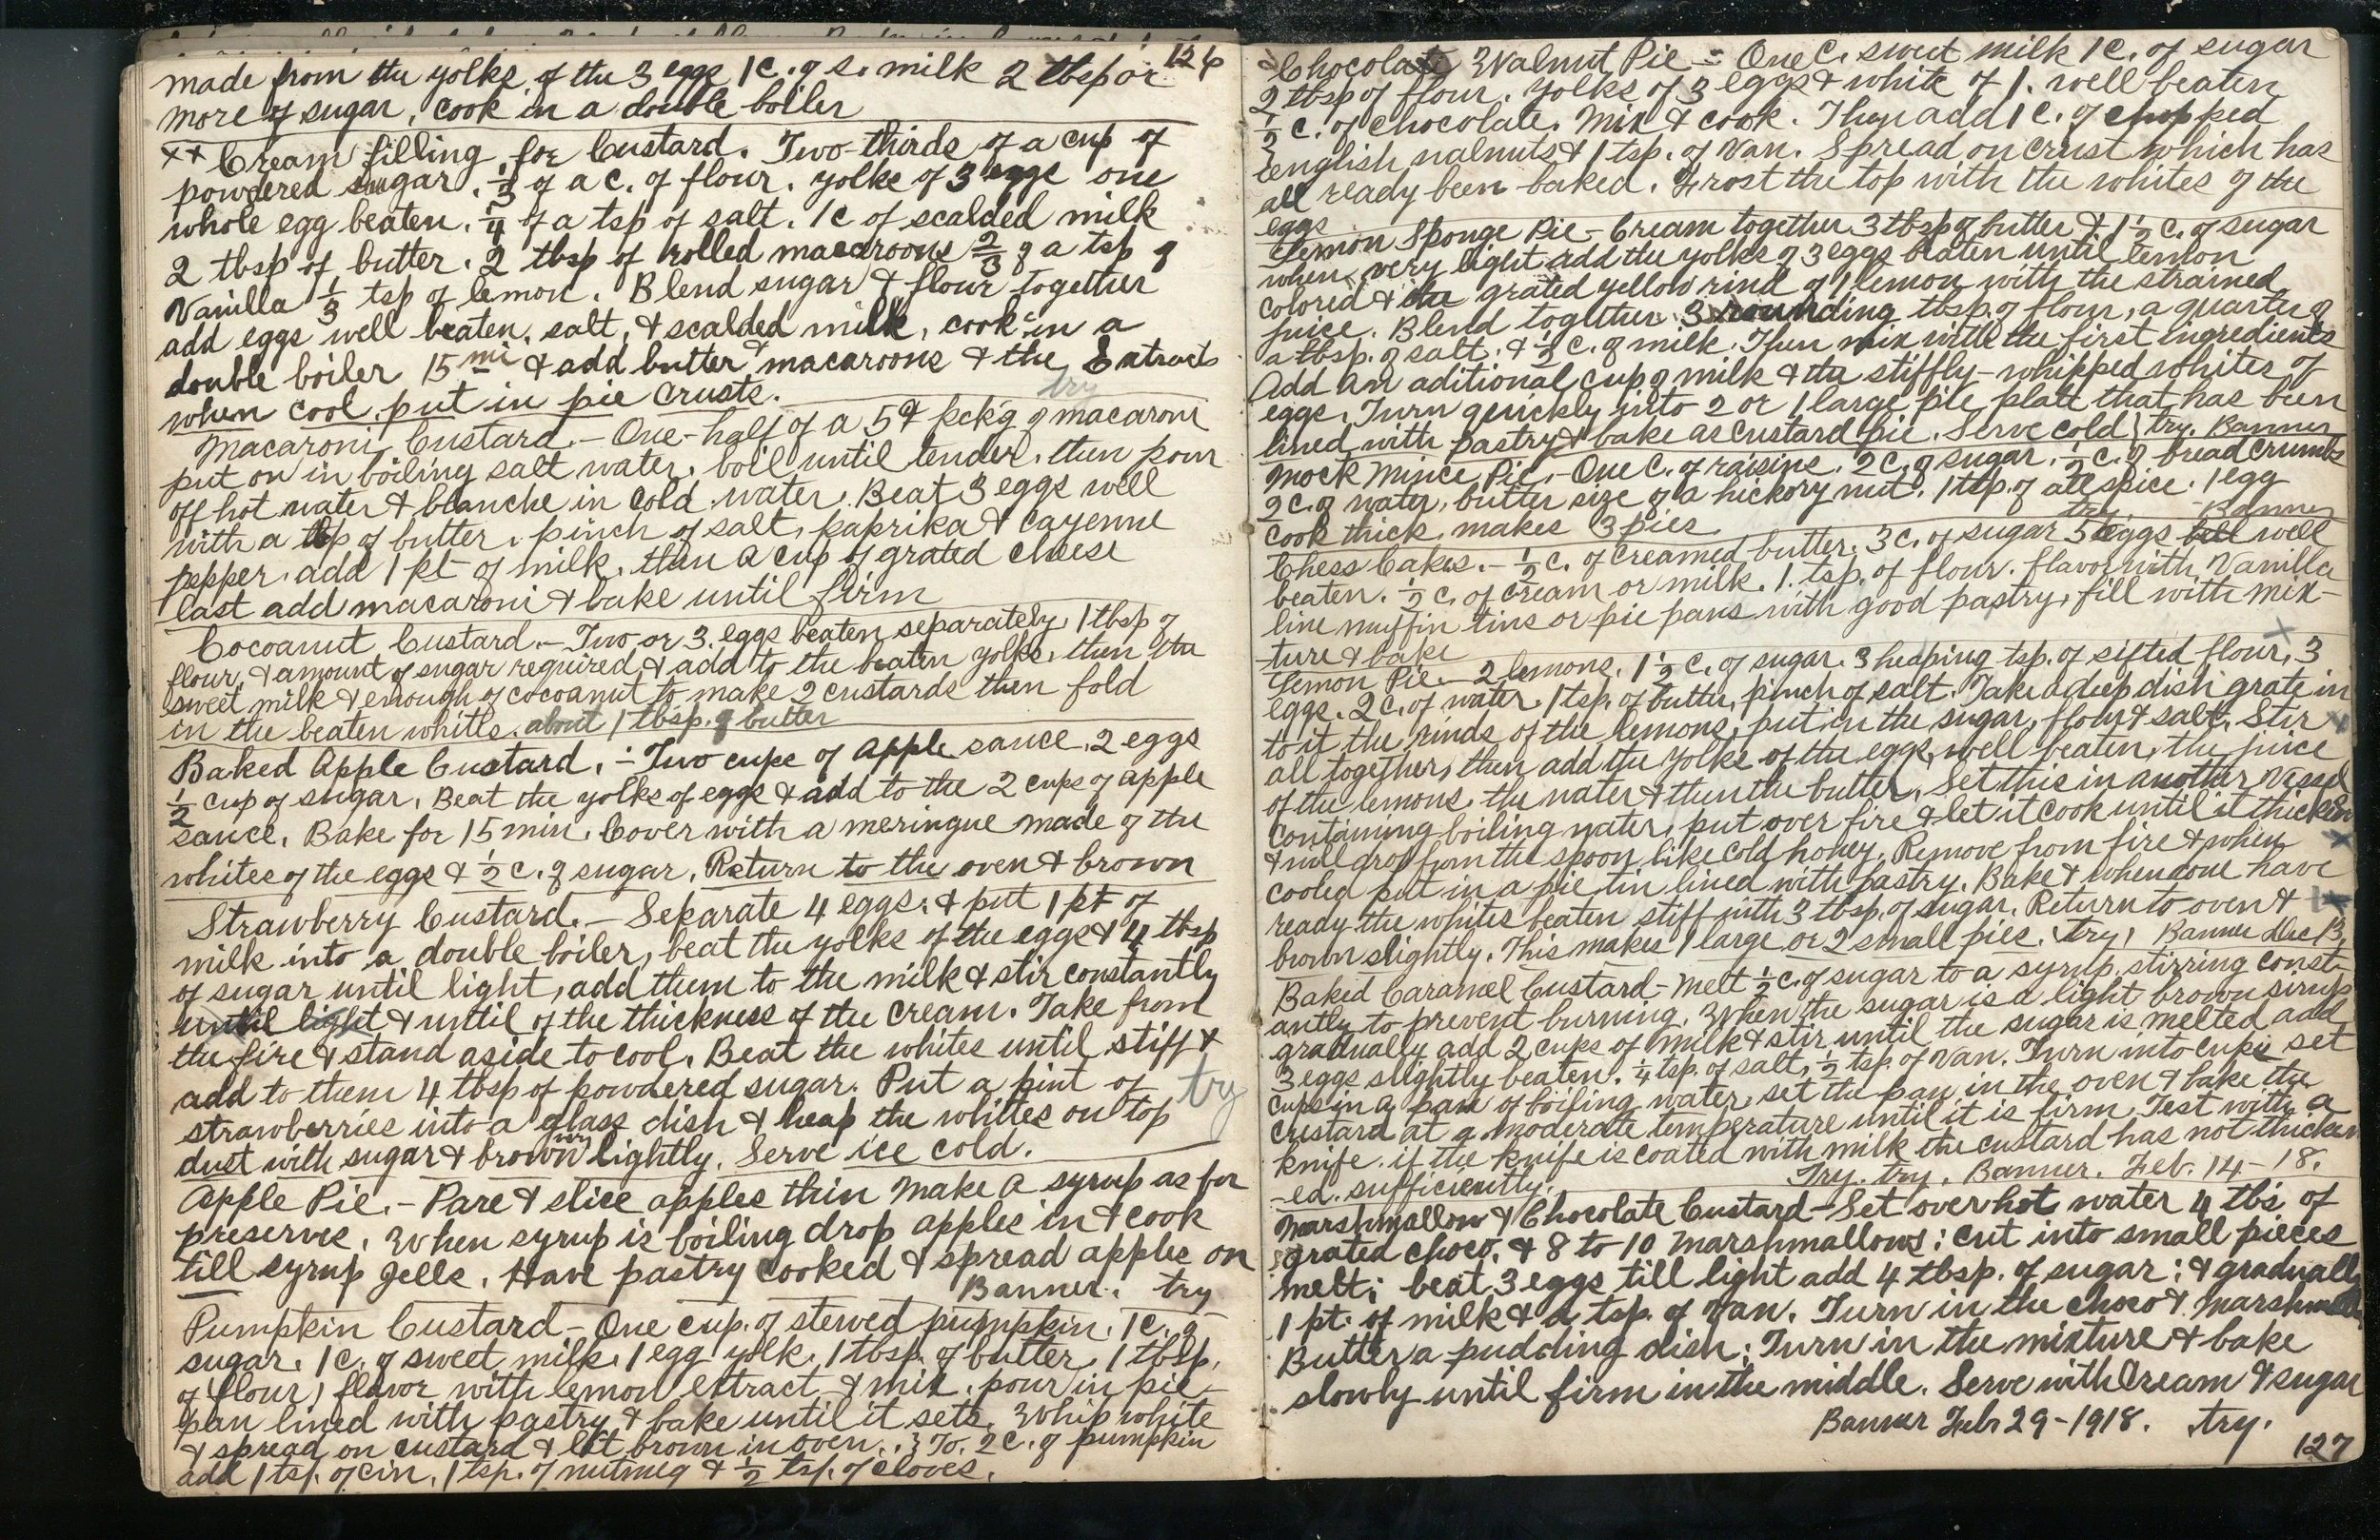 126
made from the yolks of the 3 eggs 1 c. of s. milk 2 tbsp or
more of sugar, cook in a double boiler
++ Cream filling for Custard. Two-thirds of a cup of
powdered sugar. 1/3 of a c. of flour. yolks of 3 eggs one
whole egg beaten. 1/4 of a tsp of salt. 1c of scalded milk
2 tbsp of butter. 2 tbsp of rolled macaroons 2/3 of a tsp of
Vanilla 1/3 tsp of lemon. Blend sugar & flour together
add eggs well beaten, salt, & scalded milk, cook in a
double boiler 15 mi & add butter & macaroons & the Extracts
when cool put in pie crusts. try
Macaroni Custard. - One-half of a 5¢ pck'g of macaroni
put on in boiling salt water. boil until tender. then pour
off hot water & blanche in cold water. Beat 3 eggs well
with a tsp of butter, pinch of salt, paprika & cayenne
pepper. add 1 pt of milk. then a cup of grated cheese
last add macaroni & bake until firm
Cocoanut Custard. - Two or 3. eggs beaten separately, 1 tbsp of
flour, & amount of sugar required & add to the beaten yolks, then the
sweet milk & enough of cocoanut to make 2 custards then fold
in the beaten whites. about 1 tbsp. of butter
Baked Apple Custard. - Two cups of Apple sauce, 2 eggs
1/2 cup of sugar, Beat the yolks of eggs & add to the 2 cups of apple
sauce. Bake for 15 min. Cover with a meringue made of the
whites of the eggs & 1/2 c. of sugar. Return to the oven & brown
Strawberry Custard. - Separate 4 eggs. & put 1 pt of
milk into a double boiler, beat the yolks of the eggs & 4 tbsp
of sugar until light, add them to the milk & stir constantly
until light & until of the thickness of the cream. Take from
the fire & stand aside to cool. Beat the whites until stiff &
add to them 4 tbsp of powdered sugar. Put a pint of try
strawberries into a glass dish & heap the whites on top
dust with sugar & brown lightly. Serve ice cold.
Apple Pie. - Pare & slice apples thin make a syrup as for
preserves. When syrup is boiling drop apples in & cook
till syrup jells. Have pastry cooked & spread apples on
Banner. try
Pumpkin Custard - One cup. of stewed pumpkin. 1 c. of
sugar. 1 c. of sweet milk. 1 egg yolk. 1 tbsp of butter. 1 tblsp.
of flour, flavor with lemon extract & mix. pour in pie
pan lined with pastry & bake until it sets. Whip white
& spread on custard & let brown in oven. To. 2 c. of pumpkin
add 1 tsp. of cin. 1 tsp. of nutmeg & 1/2 tsp. of cloves.
Chocolate Walnut Pie - One C. sweet milk 1 c. of sugar
2 tbsp of flour. yolks of 3 eggs & white of 1. well beaten
1/2 c. of chocolate. Mix & cook. Then add 1 c. of chopped
english walnuts & 1 tsp. of Van. Spread on crust which has
all ready been baked. Frost the top with the whites of the
eggs
Lemon Sponge Pie - Cream together 3 tbsp of butter & 1 1/2 c. of sugar
when very light add the yolks of 3 eggs beaten until lemon
colored & the grated yellow rind of 1 lemon with the strained
juice. Blend together 3 rounding tbsp. of flour, a quarter of
a tbsp. of salt. & 1/2 c. of milk. Then mix with the first ingredients
Add an aditional cup of milk & the stiffly-whipped whites of
eggs. Turn quickly into 2 or 1 large pie plate that has been
lined with pastry & bake as custard pie. Serve cold try. Banner
Mock Mince Pie. - One C. of raisins. 2 c. of sugar. 1/2 c. of bread crumbs
2 c. of water, butter size of a hickory nut. 1 tsp. of all spice. 1 egg
cook thick, makes 3 pies try Banner
Chess Cakes. - 1/2 c. of creamed butter. 3 c. of sugar 5 eggs well
beaten. 1/2 c. of cream or milk. 1. tsp. of flour. flavor with Vanilla
line muffin tins or pie pans with good pastry, fill with mix-
ture & bake
Lemon Pie. - 2 lemons. 1 1/2 c. of sugar. 3 heaping tsp. of sifted flour, 3
eggs. 2 c. of water. 1 tsp. of butter, pinch of salt. Take a deep dish grate in
to it the rinds of the lemons, put in the sugar, flour & salt. Stir
all together, then add the yolks of the eggs, well beaten, the juice
of the lemons, the water & then the butter. Set this in another vessel
containing boiling water, put over fire & let it cook until it thickens
& will drop from the spoon like cold honey. Remove from fire & when
cooled put in a pie tin lined with pastry. Bake & when done have
ready the whites beaten stiff with 3 tbsp. of sugar. Return to oven &
brown slightly. This makes 1 large or 2 small pies. try, Banner Dec 13,
Baked Caramel Custard - Melt 1/2 c. of sugar to a syrup. stirring const-
antly to prevent burning. When the sugar is a light brown sirup
gradually add 2 cups of milk & stir until the sugar is melted add
3 eggs slightly beaten. 1/4 tsp. of salt, 1/2 tsp. of Van. Turn into cups set
cups in a pan of boiling water, set the pan in the oven & bake the
custard at a moderate temperature until it is firm Test with a
knife. if the knife is coated with milk the custard has not thicken
-ed. sufficiently. Try. try. Banner. Feb. 14-18.
Marshmallow & Chocolate Custard - Set over hot water 4 tbs of
grated choco. & 8 to 10 marshmallows; cut into small pieces
melt; beat 3 eggs till light add 4 tbsp. of sugar; & gradually
1 pt. of milk & a tsp. of Van. Turn in the choco & Marshmallo
Butter a pudding dish; Turn in the mixture & bake
slowly until firm in the middle. Serve with Cream & sugar
Banner Feb 29-1918. try.
127